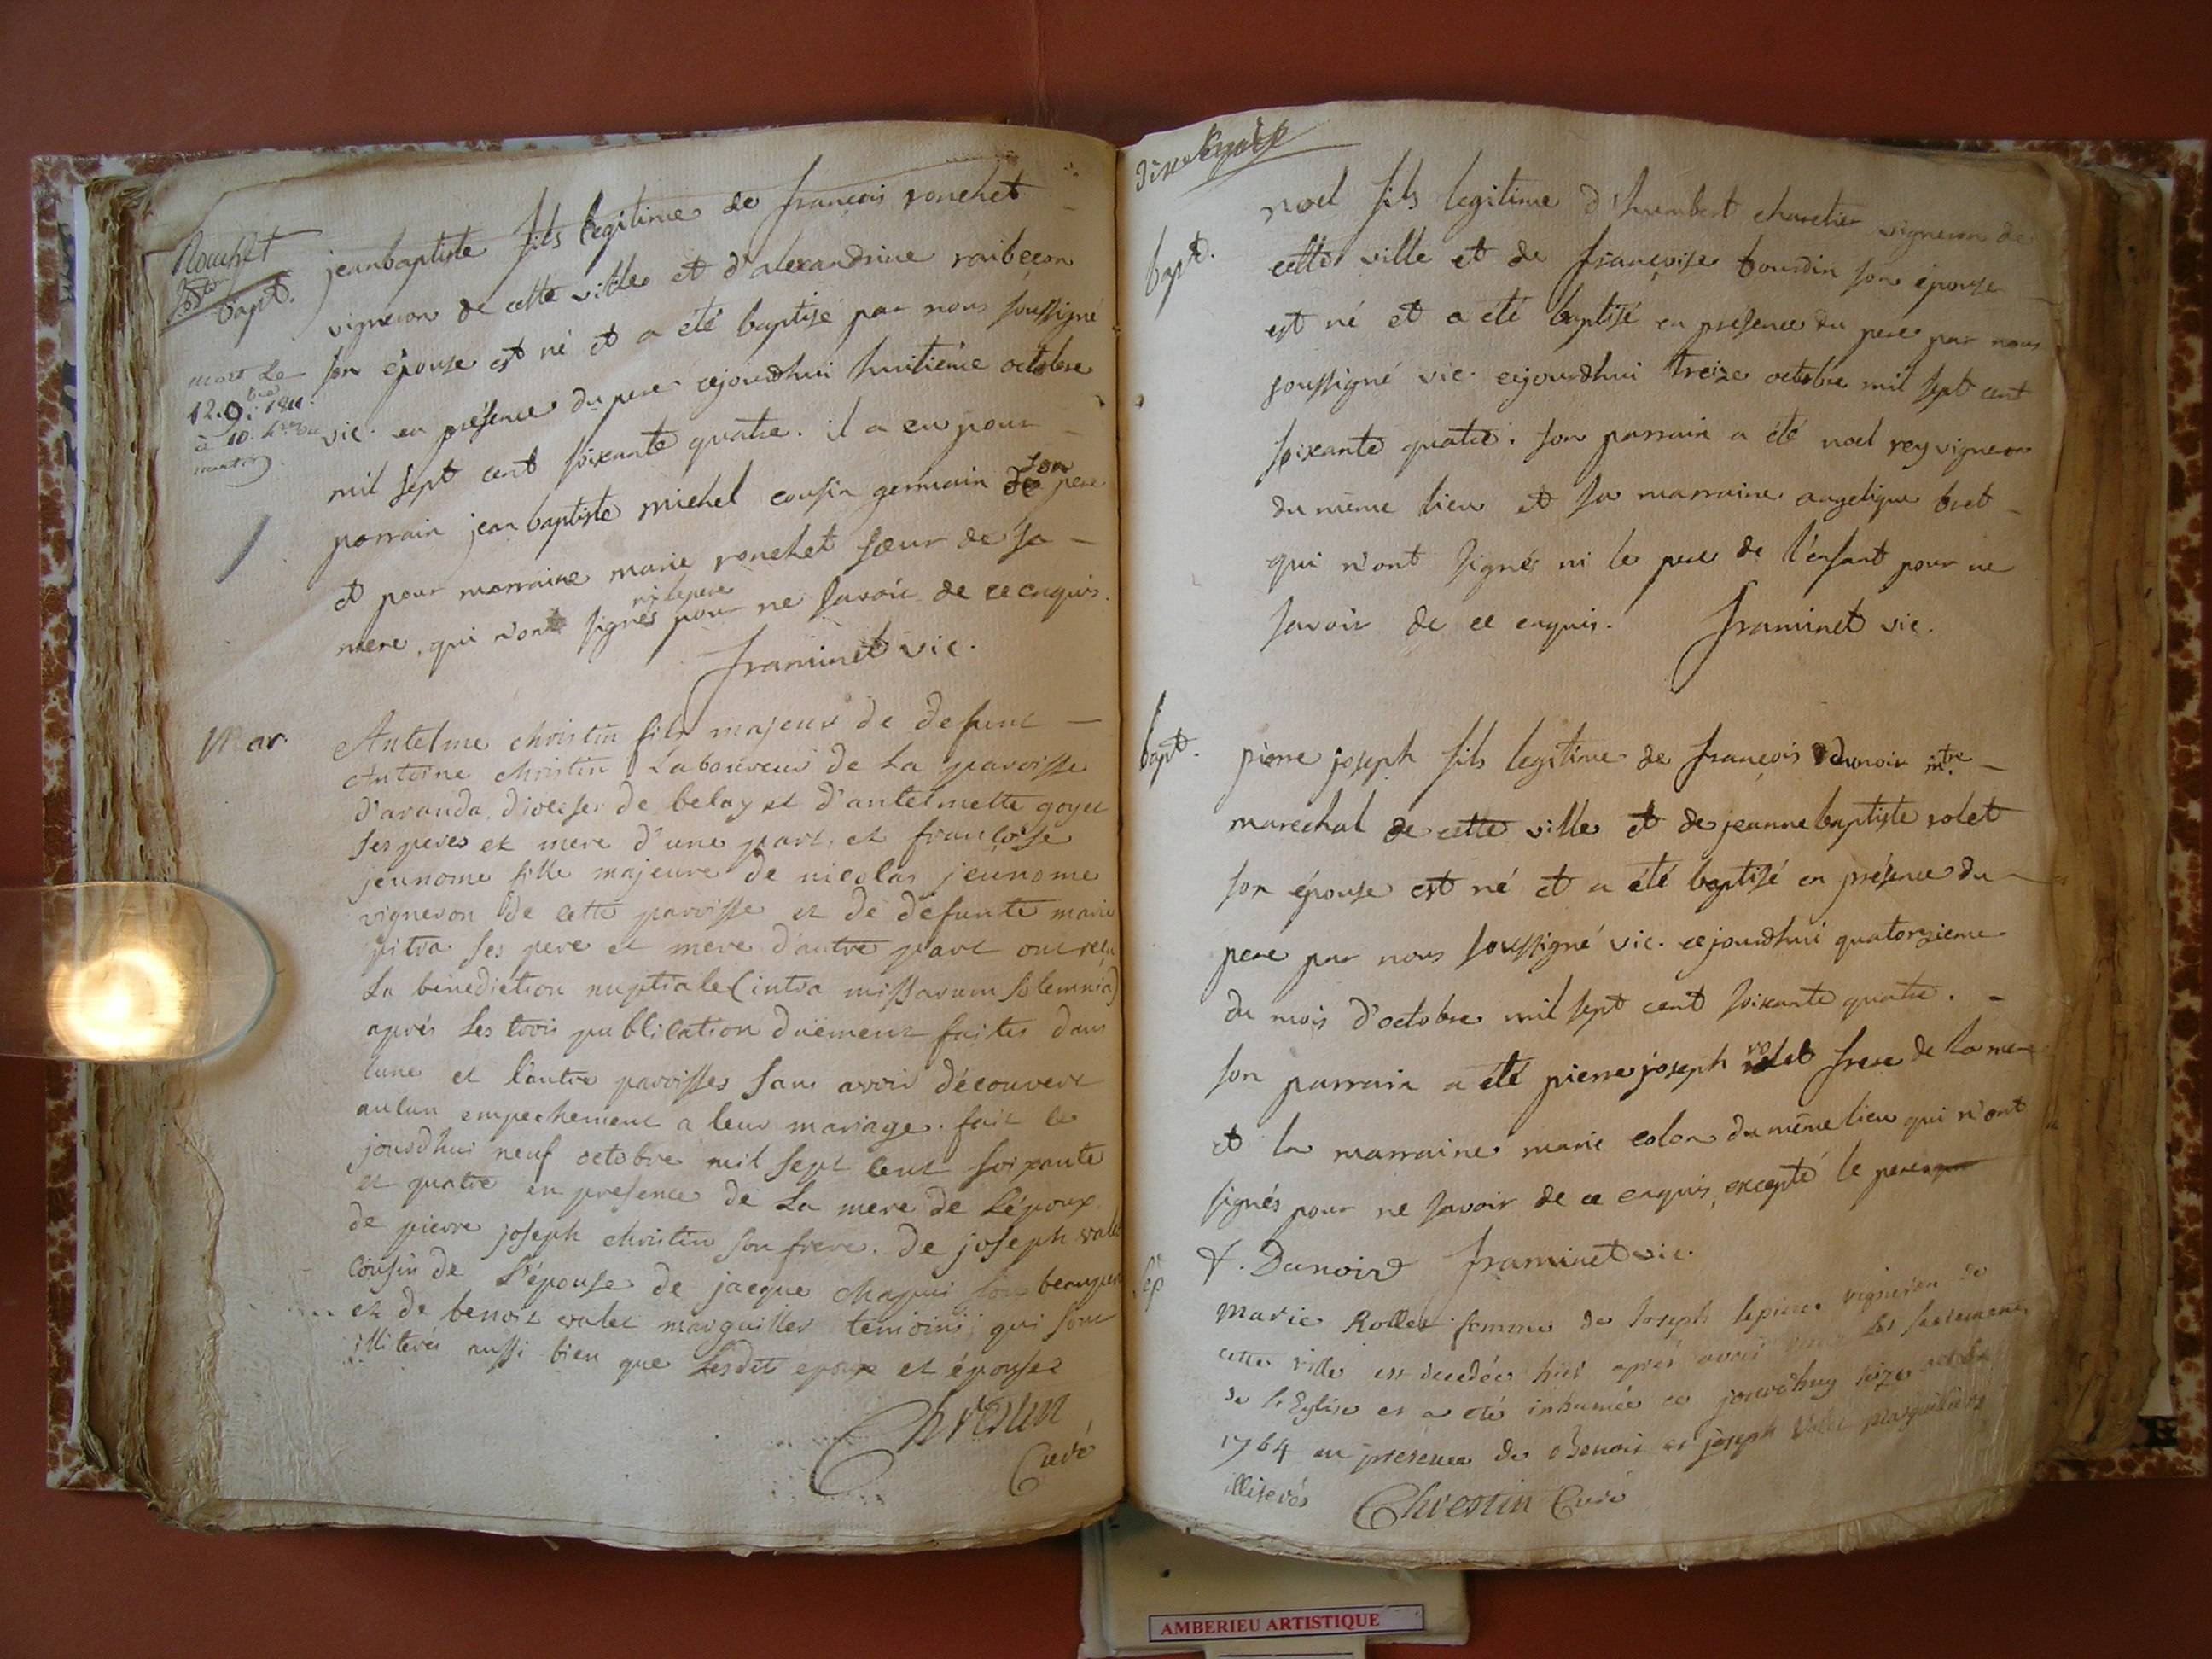 Ronchet
bapt.
mort le
12. 9bre 1811.
à 10. h
jeanbaptiste fils legitime de françois ronchet
vigneron de cette ville et d'alexandrine raibecon
son épouse est né et a été baptisé par nous soussigné
vic. en présence du pere cejourdhui huitiéme octobre
mil sept cent soixante quatre. il a eu pour
parrain jean baptiste michel cousin germain de son pere
et pour marraine marie ronchet sœur de sa
mere, qui n'ont signés ni le pere pour ne savoir de ce enquis.
framinet vic.
Mar.
Antelme christin fils majeur de defunt
Antoine christin Laboureur de La paroisse
d'aranda diocese de belay et d'antelmette goyet
ses peres et mere d'une part, et françoise
jeunome fille majeure de nicolas jeunome
vigneron de cette paroisse et de defunte marie
pitra ses pere et mere d'autre part ont reçu
La benediction nuptiale (intra missarum solemnia)
aprés Les trois publication duëment faites dans
lune et l'autre paroisses sans avoir découvert
aucun empechement a leur mariage. fait ce
jourdhui neuf octobre mil sept cent soixante
et quatre en presence de La mere de L'époux
de pierre joseph christin son frere. de joseph valet
cousin de L'épouse de jacque chapui son beaupere
et de benoit valet marguiller temoins; qui sont
illiterés aussi bien que lesdit epoux et épouses
Chrestin
Curé
bapt.
noel fils legitime d'humbert charetier vigneron de
cette ville et de françoise tourdin son épouse
est né et a été baptisé en presence du pere par nous
soussigné vic. cejourdhui treize octobre mil sept cent
soixante quatre. son parrain a été noel rey vigneron
du même lieu et sa marraine angelique bret
qui n'ont signés ni le pere de l'enfant pour ne
savoir de ce enquis. framinet vic.
bapt.
pierre joseph fils legitime de françois dunoir mtre
marechal de cette ville et de jeanne baptiste rolet
son épouse est né et a été baptisé en présence du
pere par nous soussigné vic. cejourdhui quatorzieme
du mois d'octobre mil sept cent soixante quatre.
son parrain a été pierre joseph rolet frere de la mere
et la marraine marie colon du même lieu qui n'ont
signés pour ne savoir de ce enquis, excepté le pere
f. Dunoird framinet vic.
Sep
Marie Rollet femme de Joseph lepine vigneron de
cette ville est decedée hier aprés avoir reçu les sacremens
de l'Eglise et a eté inhumée ce jourdhuy seize octobre
1764 en presence de Benoit et joseph Valet marguilliers
illiterés Chrestin Curé
AMBERIEU ARTISTIQUE